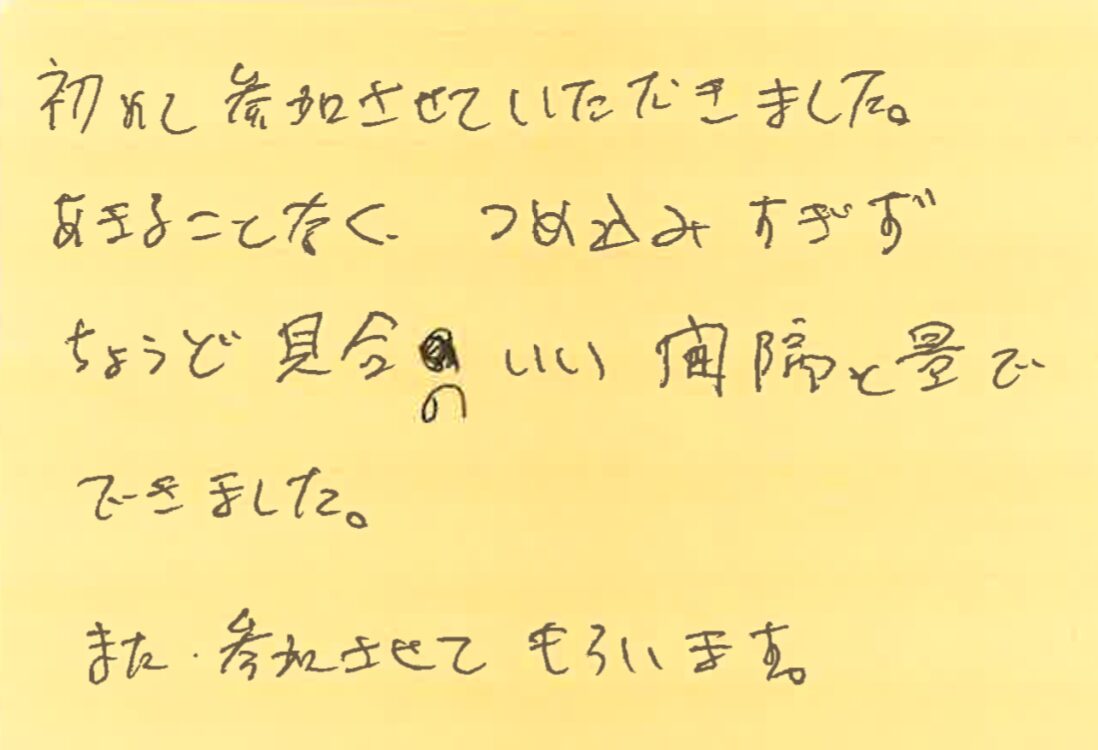 初めて参加させていただきました。
あきることなく、つめ込みすぎず
ちょうど見合のいい間隔と量で
できました。
また、参加させてもらいます。